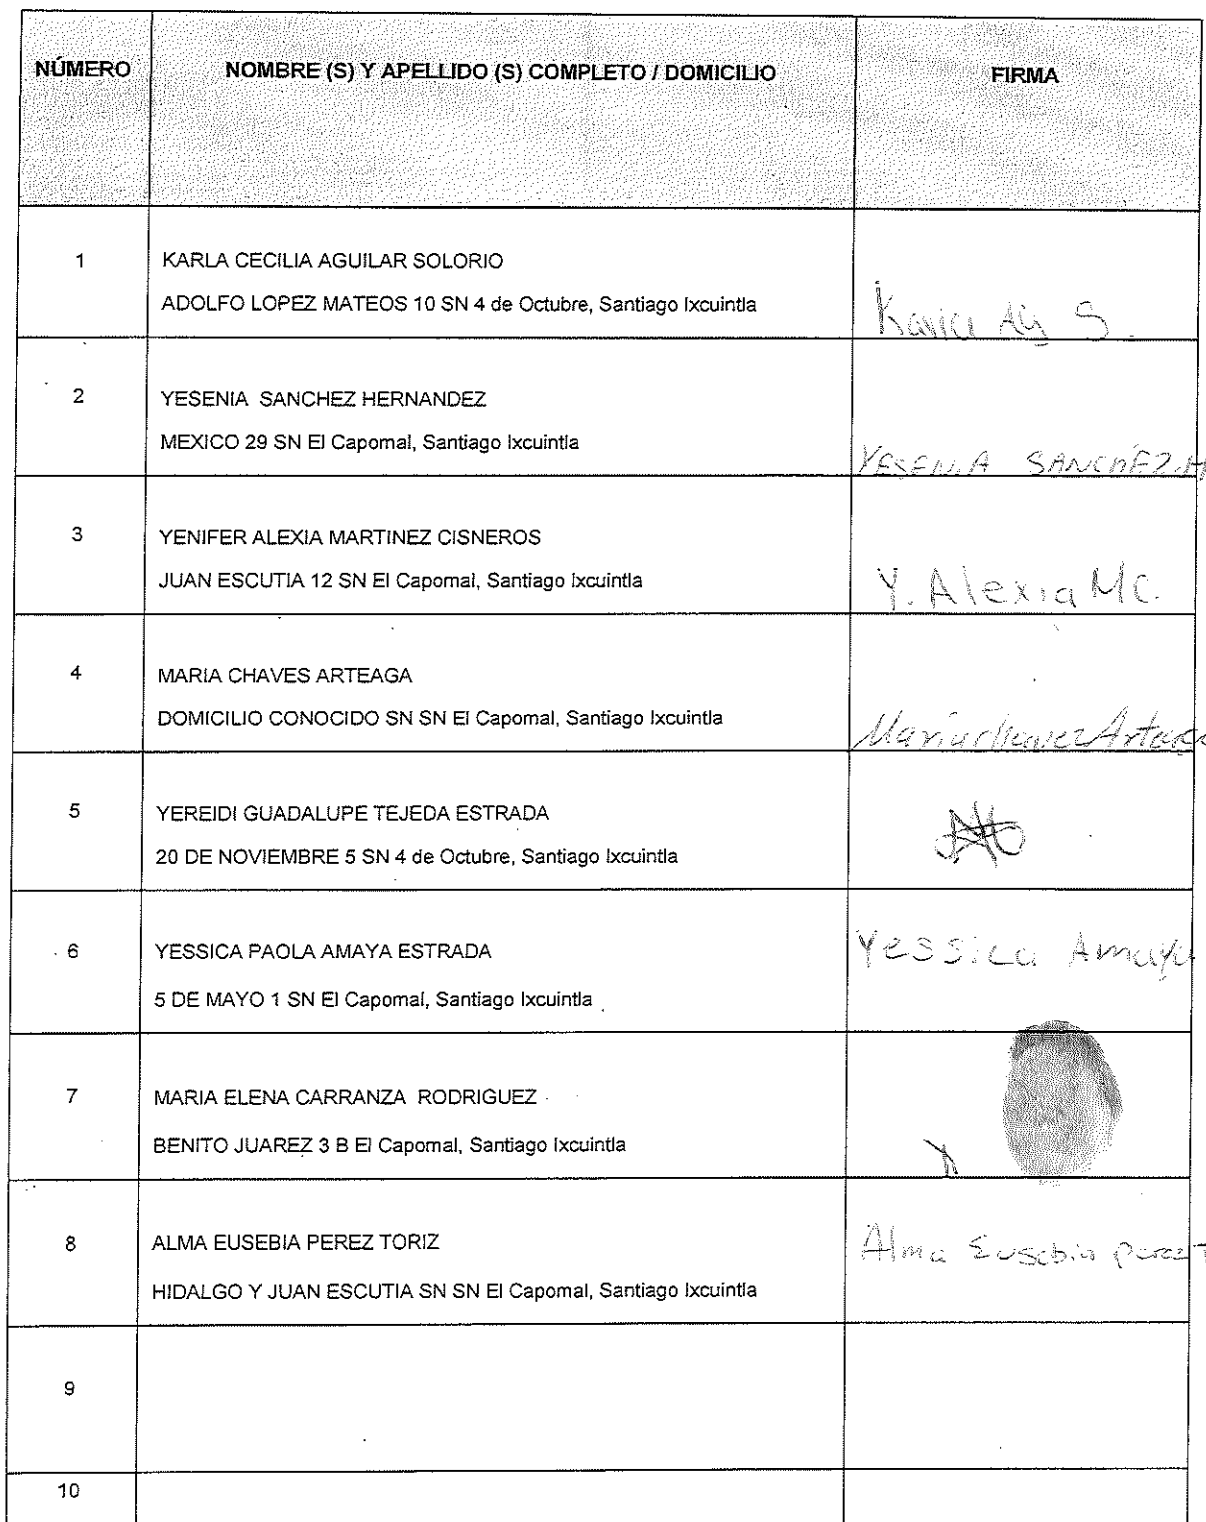 NÚMERO NOMBRE (S) Y APELLIDO (S) COMPLETO / DOMICILIO FIRMA
1 KARLA CECILIA AGUILAR SOLORIO
ADOLFO LOPEZ MATEOS 10 SN 4 de Octubre, Santiago Ixcuintla
Karla Ag S.
2 YESENIA SANCHEZ HERNANDEZ
MEXICO 29 SN El Capomal, Santiago Ixcuintla
YESENIA SANCHEZ.H
3 YENIFER ALEXIA MARTINEZ CISNEROS
JUAN ESCUTIA 12 SN El Capomal, Santiago Ixcuintla
Y. Alexia M C.
4 MARIA CHAVES ARTEAGA
DOMICILIO CONOCIDO SN SN El Capomal, Santiago Ixcuintla
Maria
5 YEREIDI GUADALUPE TEJEDA ESTRADA
20 DE NOVIEMBRE 5 SN 4 de Octubre, Santiago Ixcuintla
6 YESSICA PAOLA AMAYA ESTRADA
Yessica Amaya
5 DE MAYO 1 SN El Capomal, Santiago Ixcuintla
7 MARIA ELENA CARRANZA RODRIGUEZ
BENITO JUAREZ 3 B El Capomal, Santiago Ixcuintla
8 ALMA EUSEBIA PEREZ TORIZ
Alma Eusebia perez T
HIDALGO Y JUAN ESCUTIA SN SN El Capomal, Santiago Ixcuintla
9
10